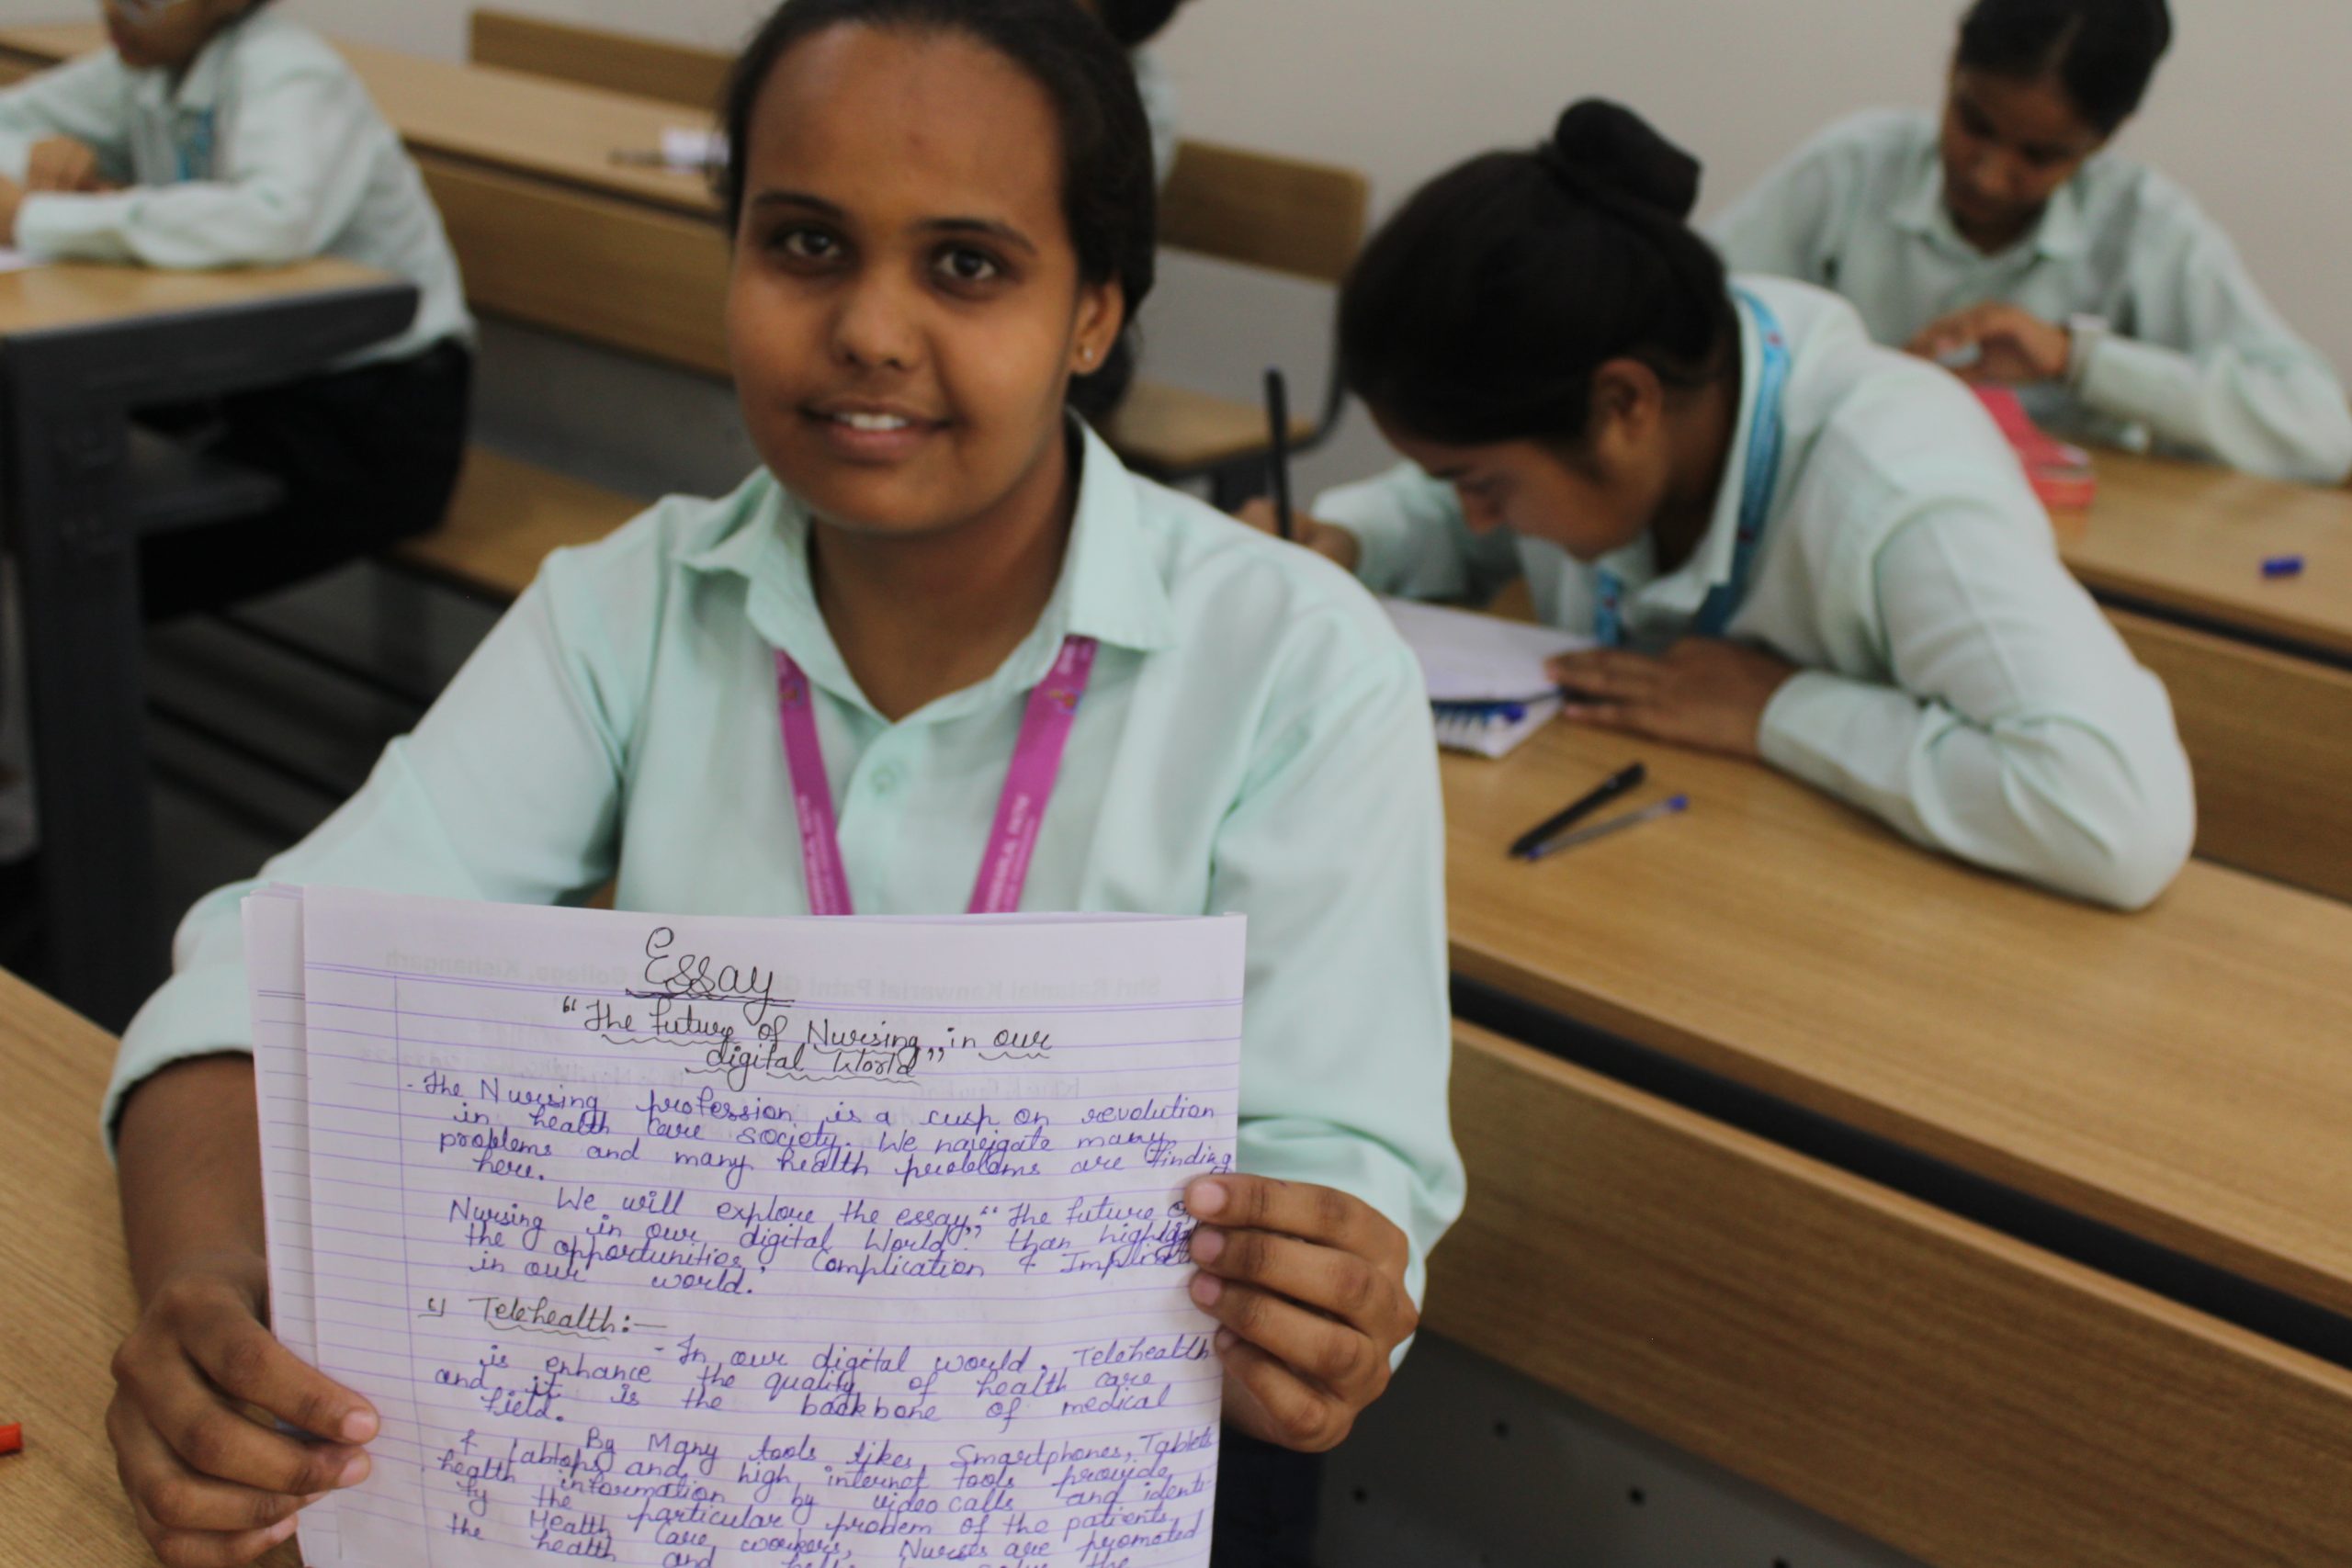 Essay
"The future of Nursing" in our
digital World
- The Nursing profession is a cusp on revolution
in health care society. We navigate many
problems and many health problems are finding
here.
We will explore the essay, "The future of
Nursing in our digital World". than
the opportunities, Complication &
in our world.
Telehealth:-
- In our digital world, Telehealth
is enhance the quality of health care
and it is the backbone of medical
field.
By Many tools likes Smartphones, Tablets
& labtops and high internet tools provide
health information by video calls and identi-
fy the particular problem of the patients.
the Health Care workers, Nurses are promoted
health and